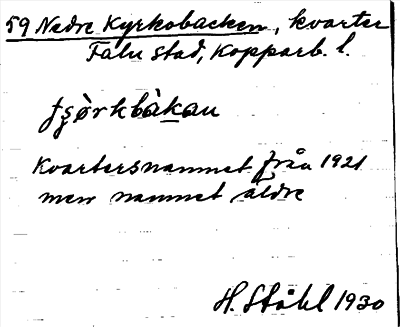 59 Nedre Kyrkobacken, kvarter
Falu stad, Kopparb. l.
tʂö̀rkbàkan
Kvartersnamnet från 1921
men namnet äldre
H. Ståhl 1930